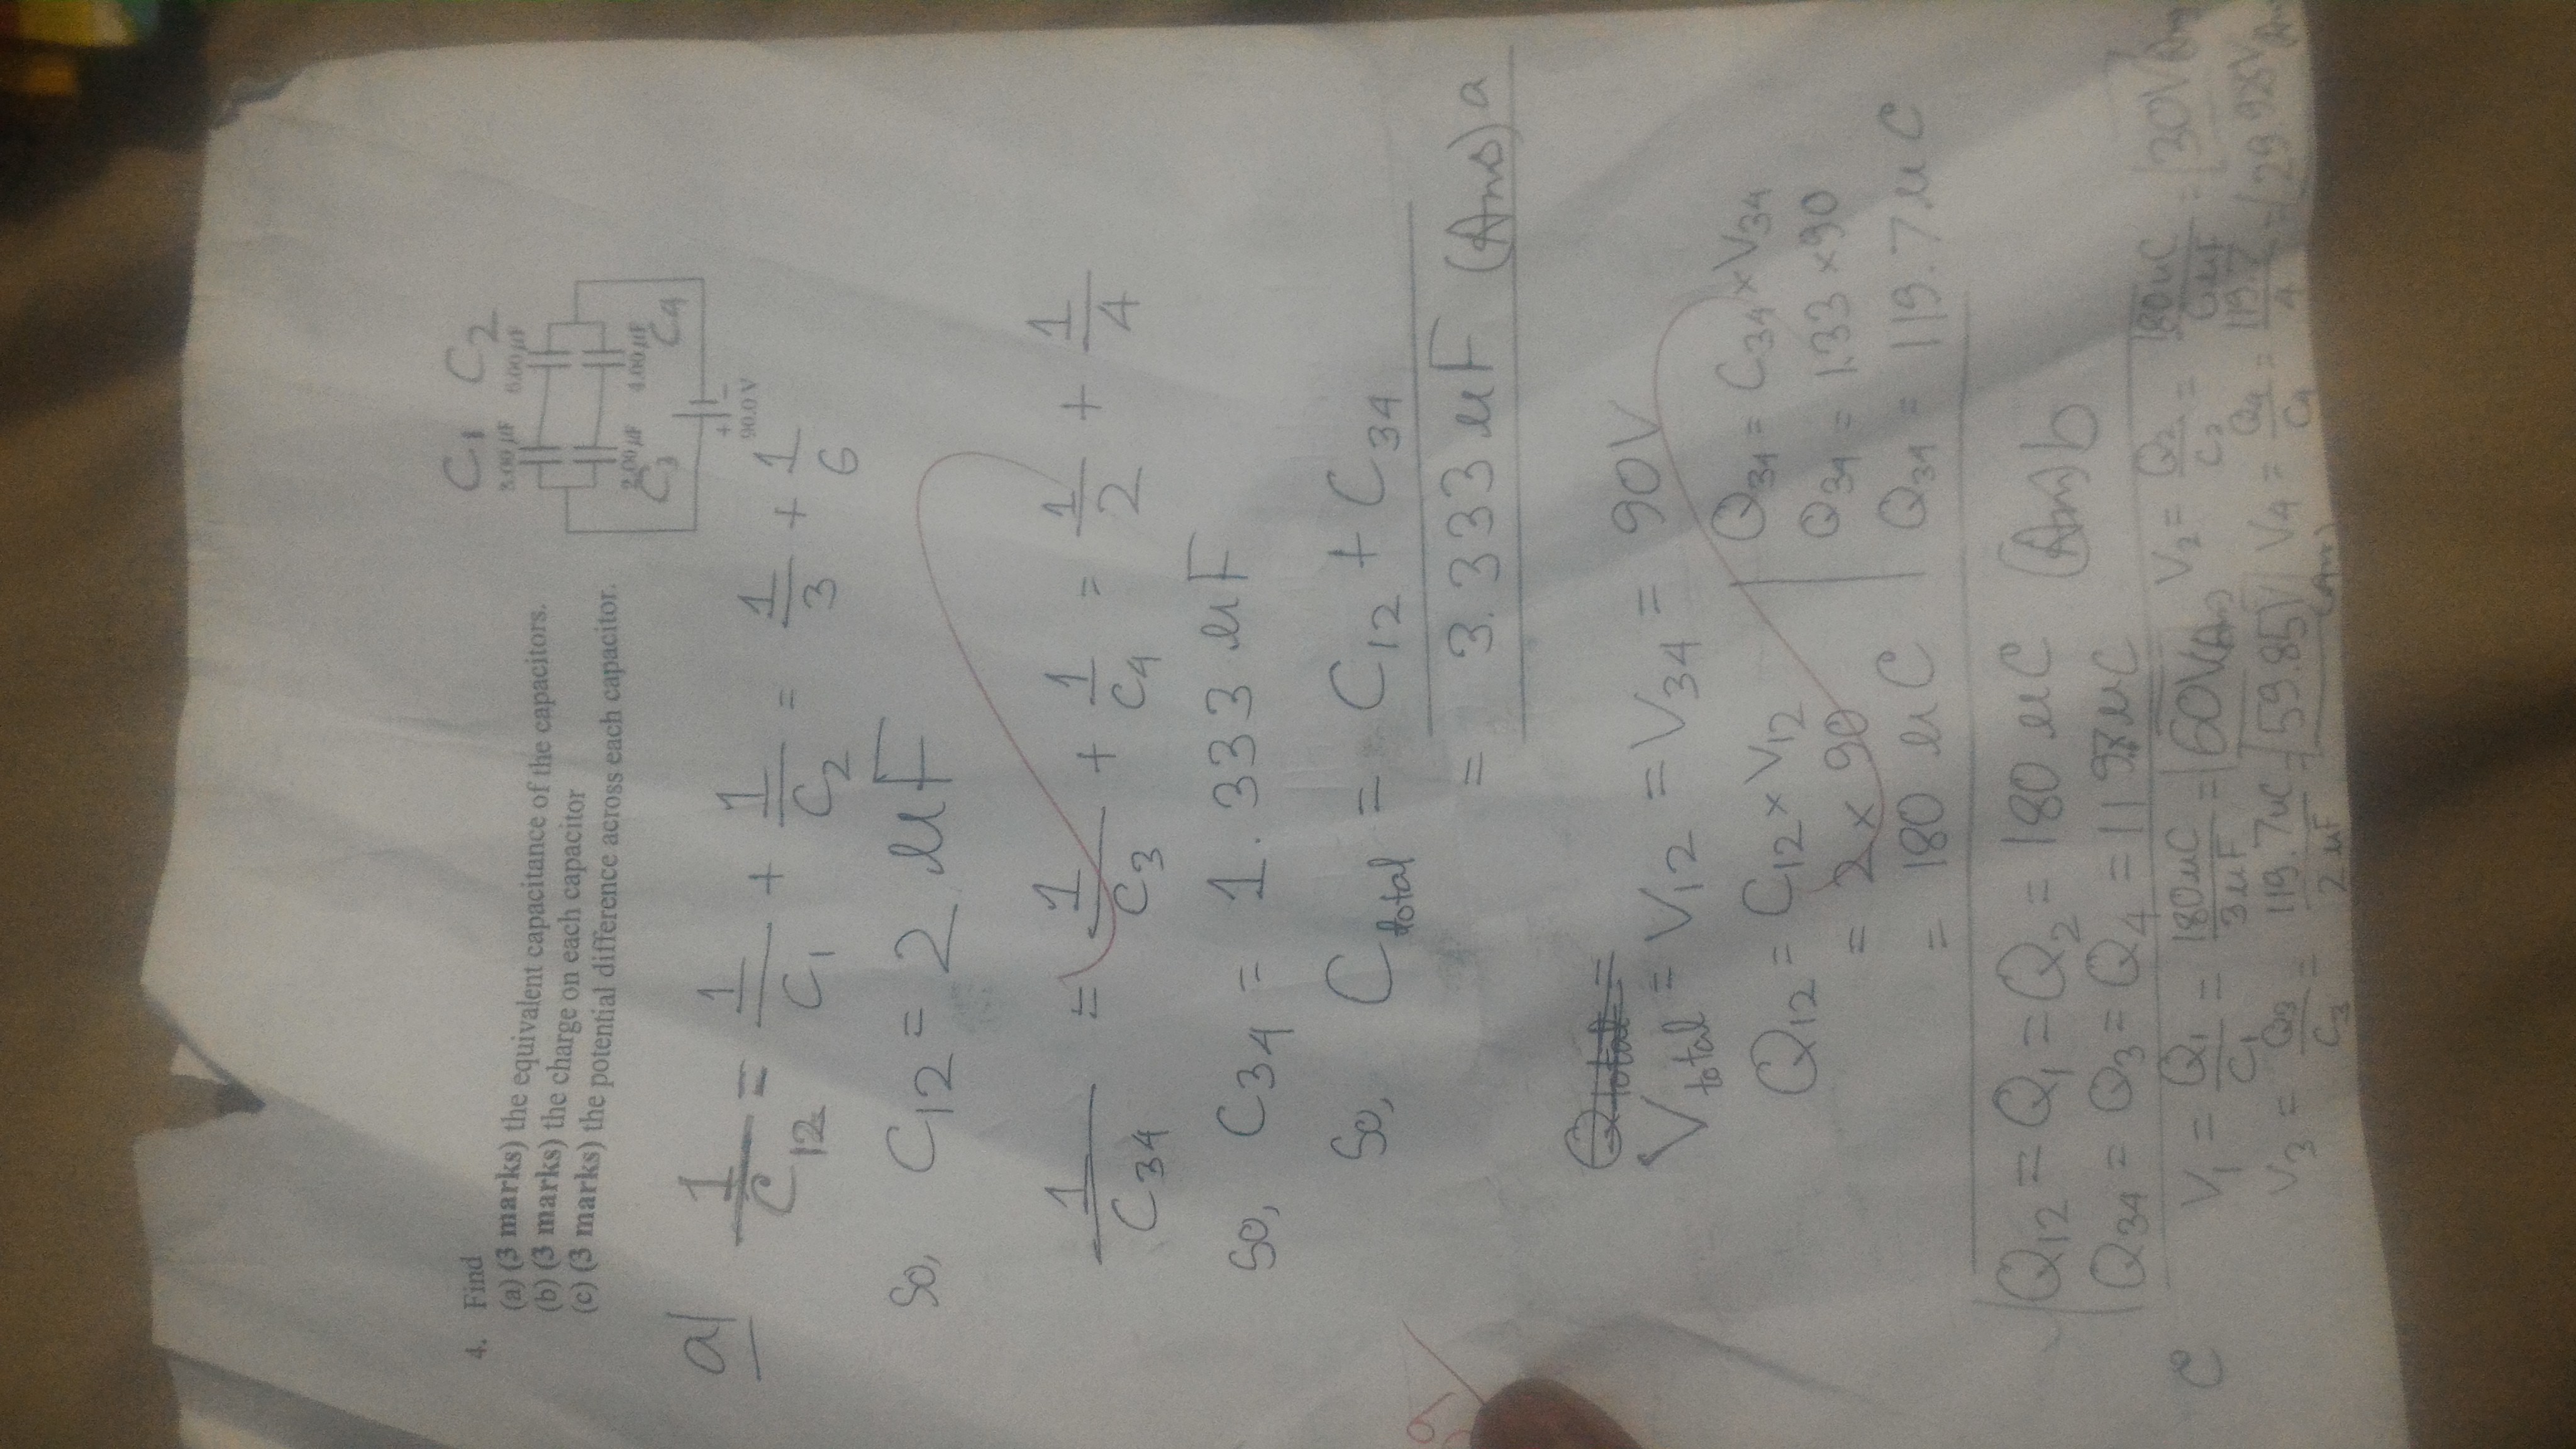 4. Find
(a) (3 marks) the equivalent capacitance of the capacitors.
(b) (3 marks) the charge on each capacitor
(c) (3 marks) the potential difference across each capacitor.
C1 C2
3.00 μF 6.00 μF
2.00 μF 4.00 μF
C3 C4
90.0 V
+ −
a
1/C12 = 1/C1 + 1/C2 = 1/3 + 1/6
So, C12 = 2 μF
1/C34 = 1/C3 + 1/C4 = 1/2 + 1/4
So, C34 = 1.333 μF
So, Ctotal = C12 + C34
= 3.333 μF (Ans) a
Qtotal =
Vtotal = V12 = V34 = 90V
Q12 = C12 × V12
= 2 × 90
= 180 μC
Q34 = C34 × V34
Q34 = 1.33 × 90
Q34 = 119.7 μC
Q12 = Q1 = Q2 = 180 μC (Ans) b
Q34 = Q3 = Q4 = 119.7 μC
C
V1 = Q1/C1 = 180μC/3μF = 60V (Ans)
V2 = Q2/C2 = 180μC/6μF = 30V (Ans)
V3 = Q3/C3 = 119.7μC/2μF = 59.85V (Ans)
V4 = Q4/C4 = 119.7/4 = 29.925V